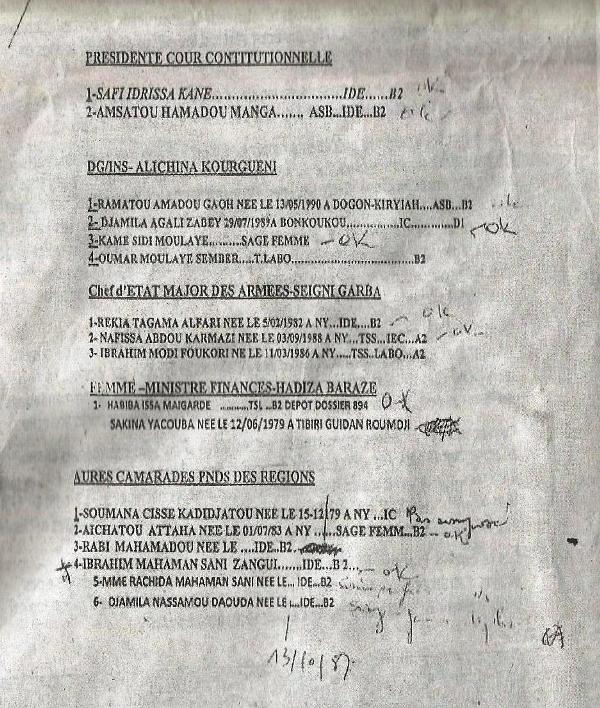 PRESIDENTE COUR CONTITUTIONNELLE
1-SAFI IDRISSA KANE................................IDE......B2 ok
2-AMSATOU HAMADOU MANGA....... ASB...IDE...B2 ok
DG/INS- ALICHINA KOURGUENI
1-RAMATOU AMADOU GAOH NEE LE 13/05/1990 A DOGON-KIRYIAH....ASB...B2
2- DJAMILA AGALI ZABEY 29/07/1989A BONKOUKOU..............IC...........D1 - OK
3-KAME SIDI MOULAYE..........SAGE FEMME - OK
4-OUMAR MOULAYE SEMBER....T.LABO.......................................B2
Chef d'ETAT MAJOR DES ARMEES-SEIGNI GARBA
1-REKIA TAGAMA ALFARI NEE LE 5/02/1982 A NY...IDE....B2 - ok
2- NAFISSA ABDOU KARMAZI NEE LE 03/09/1988 A NY...TSS...IEC...A2
3- IBRAHIM MODI FOUKORI NE LE 11/03/1986 A NY....TSS..LABO...A2
FEMME –MINISTRE FINANCES-HADIZA BARAZE
1- HABIBA ISSA MAIGARDE ...........TSL ...B2 DEPOT DOSSIER 894 OK
SAKINA YACOUBA NEE LE 12/06/1979 A TIBIRI GUIDAN ROUMDJI
AURES CAMARADES PNDS DES REGIONS
1-SOUMANA CISSE KADIDJATOU NEE LE 15-12/79 A NY ...IC Pas
2-AICHATOU ATTAHA NEE LE 01/07/83 A NY ......SAGE FEMM...B2 - OK
3-RABI MAHAMADOU NEE LE ....IDE..B2
4-IBRAHIM MAHAMAN SANI ZANGUI.......IDE...B 2... - OK
5-MME RACHIDA MAHAMAN SANI NEE LE... IDE...B2
6- DJAMILA NASSAMOU DAOUDA NEE LE ....IDE...B2
13/10/87